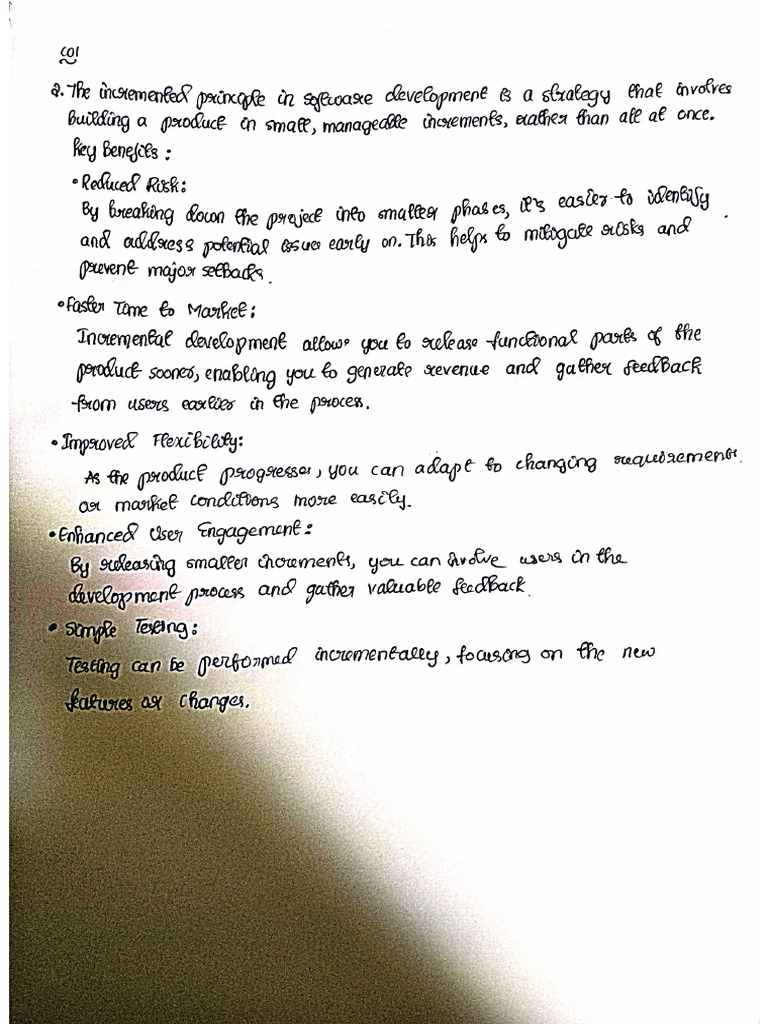 CO1
2. The incremented principle in software development is a strategy that involves
building a product in small, manageable increments, rather than all at once.
Key Benefits :
• Reduced Risk:
By breaking down the project into smaller phases, it's easier to identify
and address potential issues early on. This helps to mitigate risks and
prevent major setbacks.
• Faster Time to Market:
Incremental development allows you to release functional parts of the
product sooner, enabling you to generate revenue and gather feedback
from users earlier in the process.
• Improved Flexibility:
As the product progresses, you can adapt to changing requirements
or market conditions more easily.
• Enhanced User Engagement:
By releasing smaller increments, you can involve users in the
development process and gather valuable feedback.
• Simple Testing:
Testing can be performed incrementally, focusing on the new
features or changes.